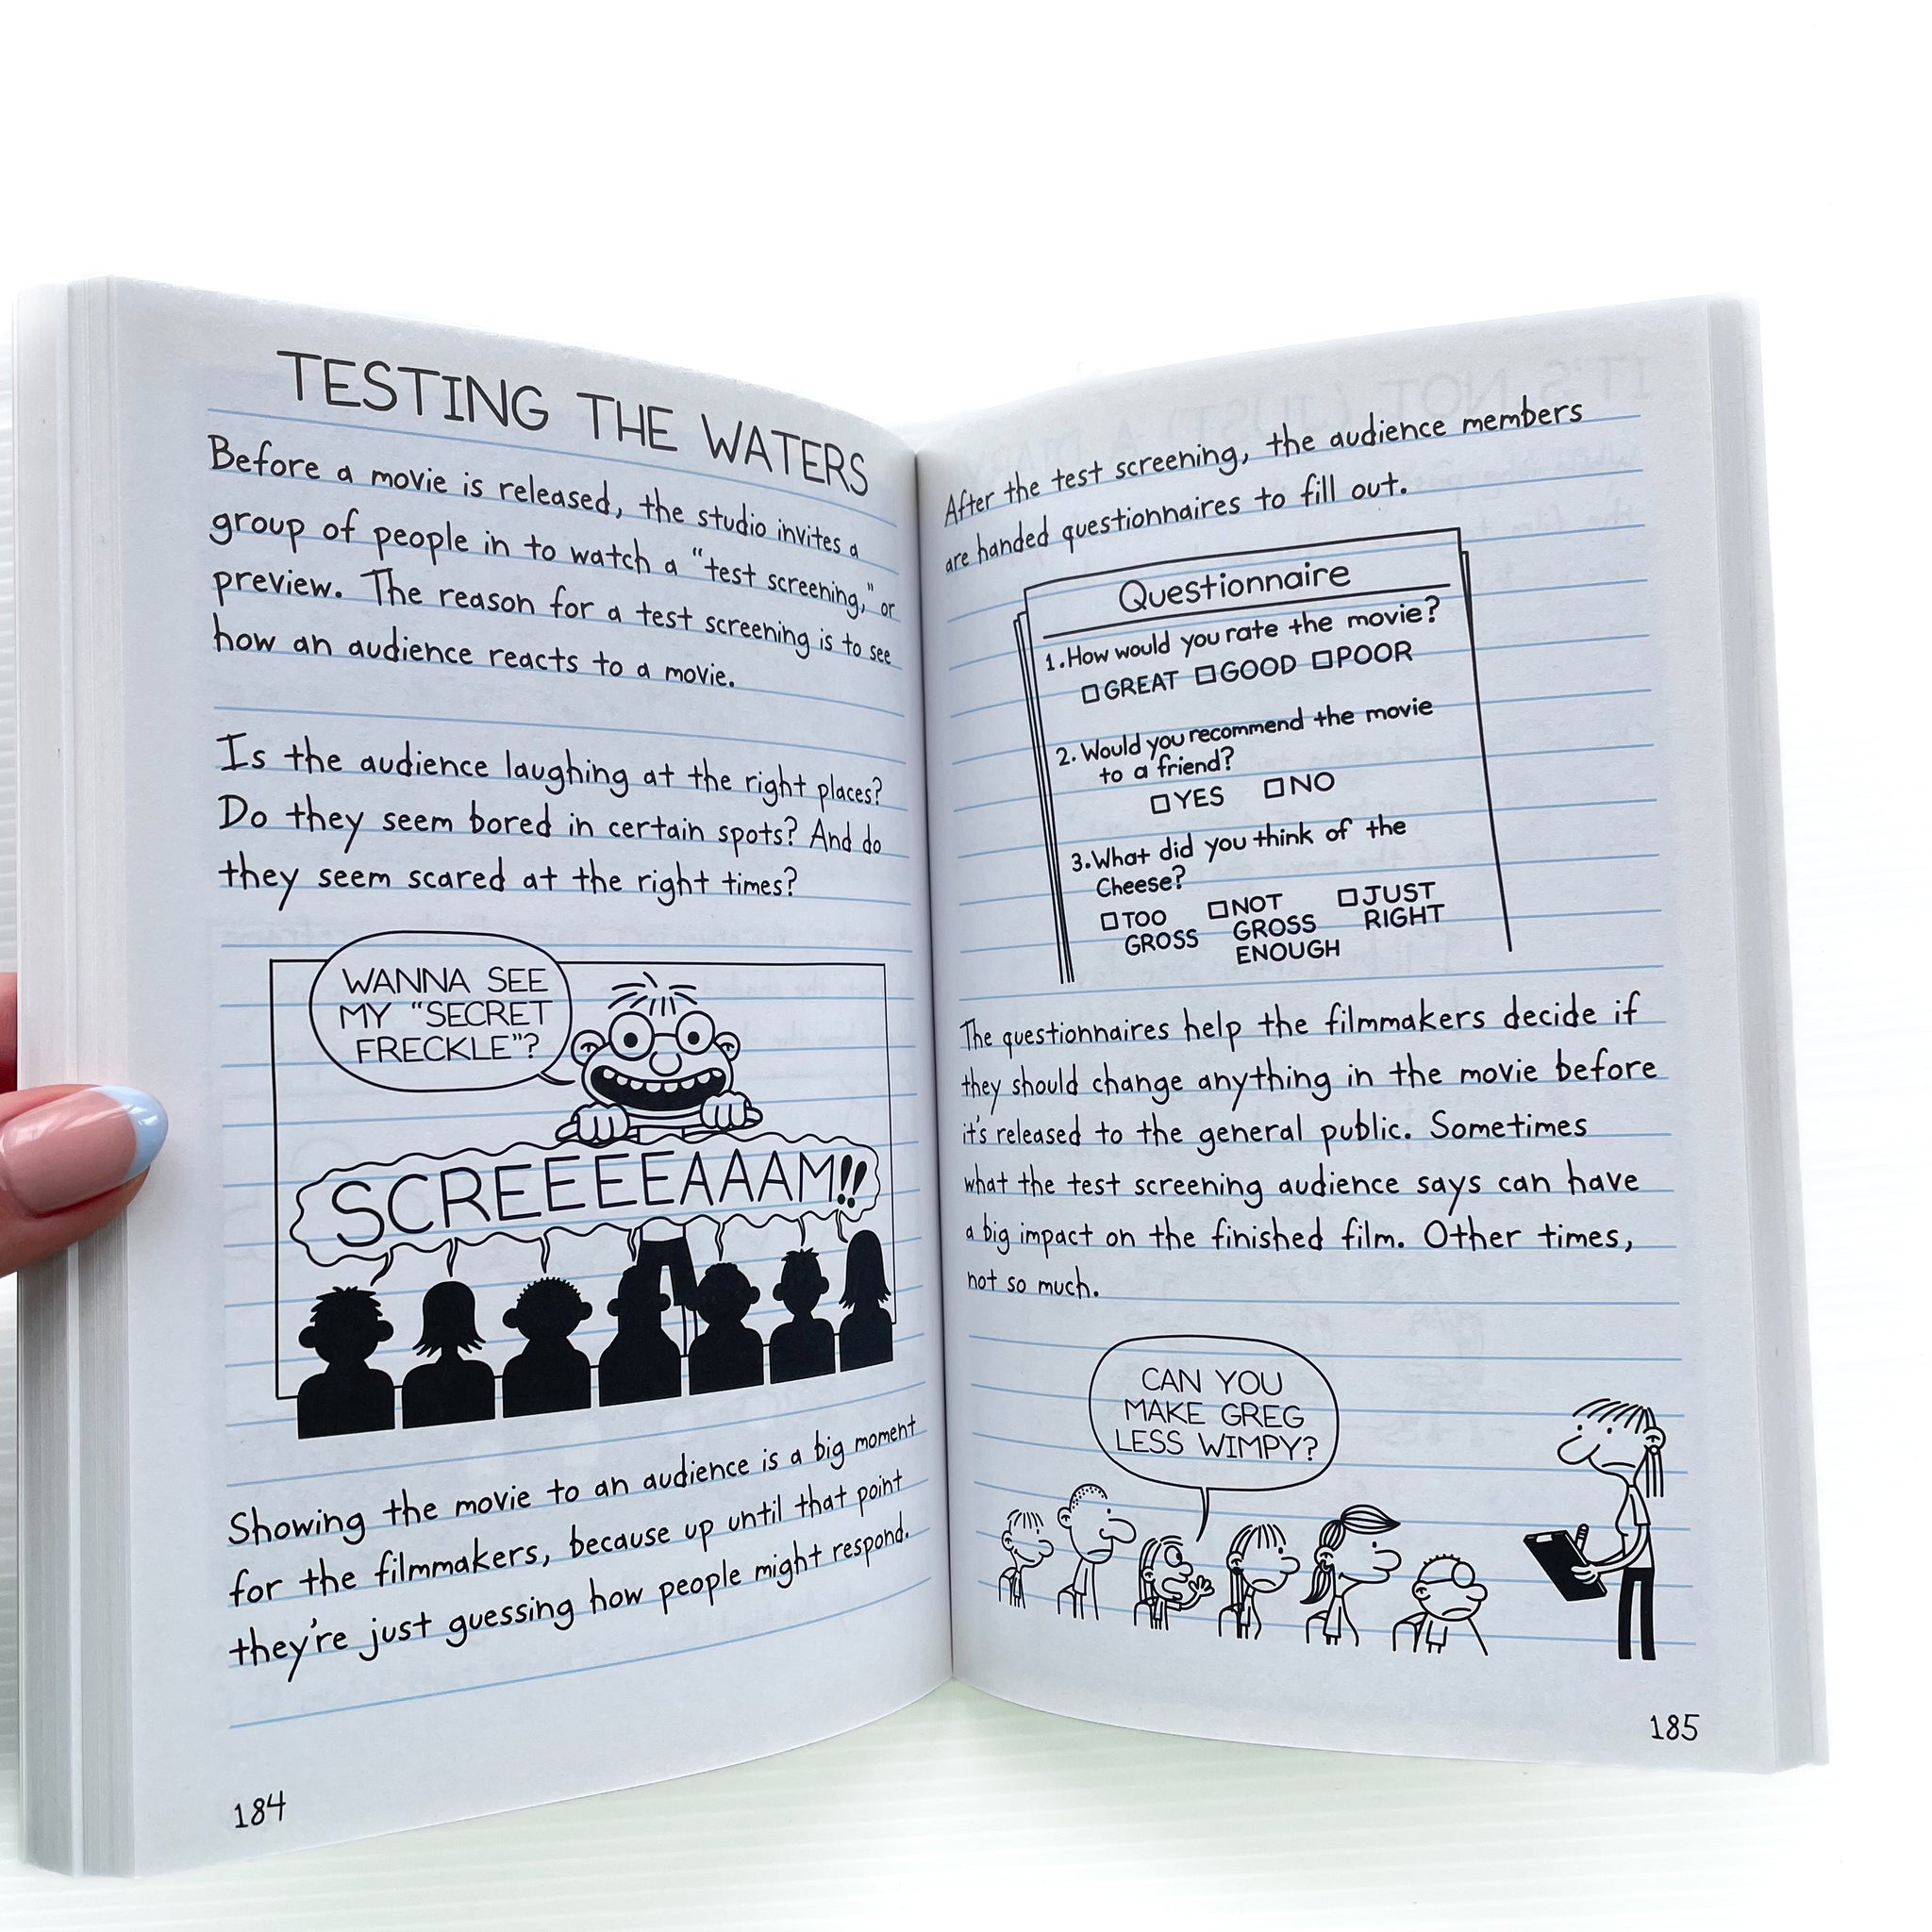 TESTING THE WATERS
Before a movie is released, the studio invites a
group of people in to watch a “test screening,” or
preview. The reason for a test screening is to see
how an audience reacts to a movie.
Is the audience laughing at the right places?
Do they seem bored in certain spots? And do
they seem scared at the right times?
WANNA SEE
MY “SECRET
FRECKLE”?
SCREEEEAAAM!!
Showing the movie to an audience is a big moment
for the filmmakers, because up until that point
they're just guessing how people might respond.
184
After the test screening, the audience members
are handed questionnaires to fill out.
Questionnaire
1. How would you rate the movie?
GREAT GOOD POOR
2. Would you recommend the movie
to a friend?
YES NO
3. What did you think of the
Cheese?
TOO NOT JUST
GROSS GROSS RIGHT
ENOUGH
The questionnaires help the filmmakers decide if
they should change anything in the movie before
it's released to the general public. Sometimes
what the test screening audience says can have
a big impact on the finished film. Other times,
not so much.
CAN YOU
MAKE GREG
LESS WIMPY?
185